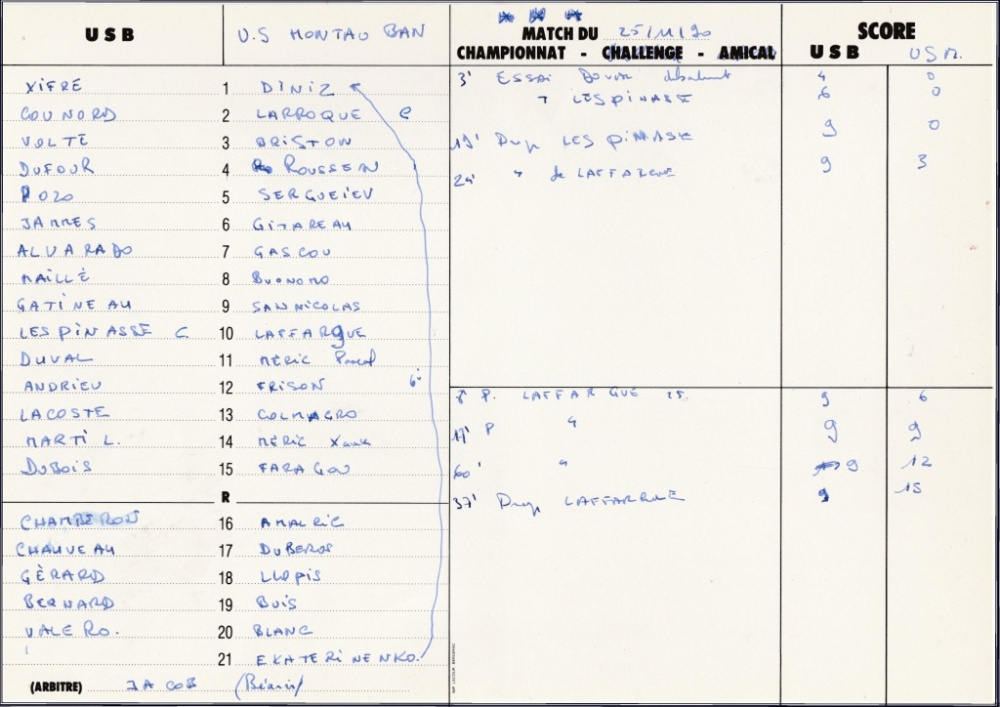 USB U.S MONTAUBAN
XIFRE 1 DINIZ
COUNORD 2 LARROQUE C
VOLTE 3 BRISTON
DUFOUR 4 ROUSSEAU
POZO 5 SERGUEIEV
JAMMES 6 GITAREAU
ALVARADO 7 GASCOU
MAILLÉ 8 BUONOMO
GATINEAU 9 SANNICOLAS
LESPINASSE C 10 LAFFARGUE
DUVAL 11 MÉRIC Pascal
ANDRIEU 12 FRISON
LACOSTE 13 COLMAGRO
MARTI L. 14 MÉRIC
DUBOIS 15 FARAGOU
R
CHAMBERON 16 AMALRIC
CHAUVEAU 17 DUBEROS
GÉRARD 18 LLOPIS
BERNARD 19 BUIS
VALERO. 20 BLANC
21 EKATERINENKO
(ARBITRE) JACOB (Béarn)
MATCH DU 25/11/90 SCORE
CHAMPIONNAT - CHALLENGE - AMICAL USB USM.
3' ESSAI DUVAL 4 0
" LESPINASSE 6 0
19' Drop LESPINASSE 9 0
24' " de LAFFARGUE 9 3
8' P. LAFFARGUE 9 6
17' P " 9 9
60' " 9 12
37' Drop LAFFARGUE 9 15